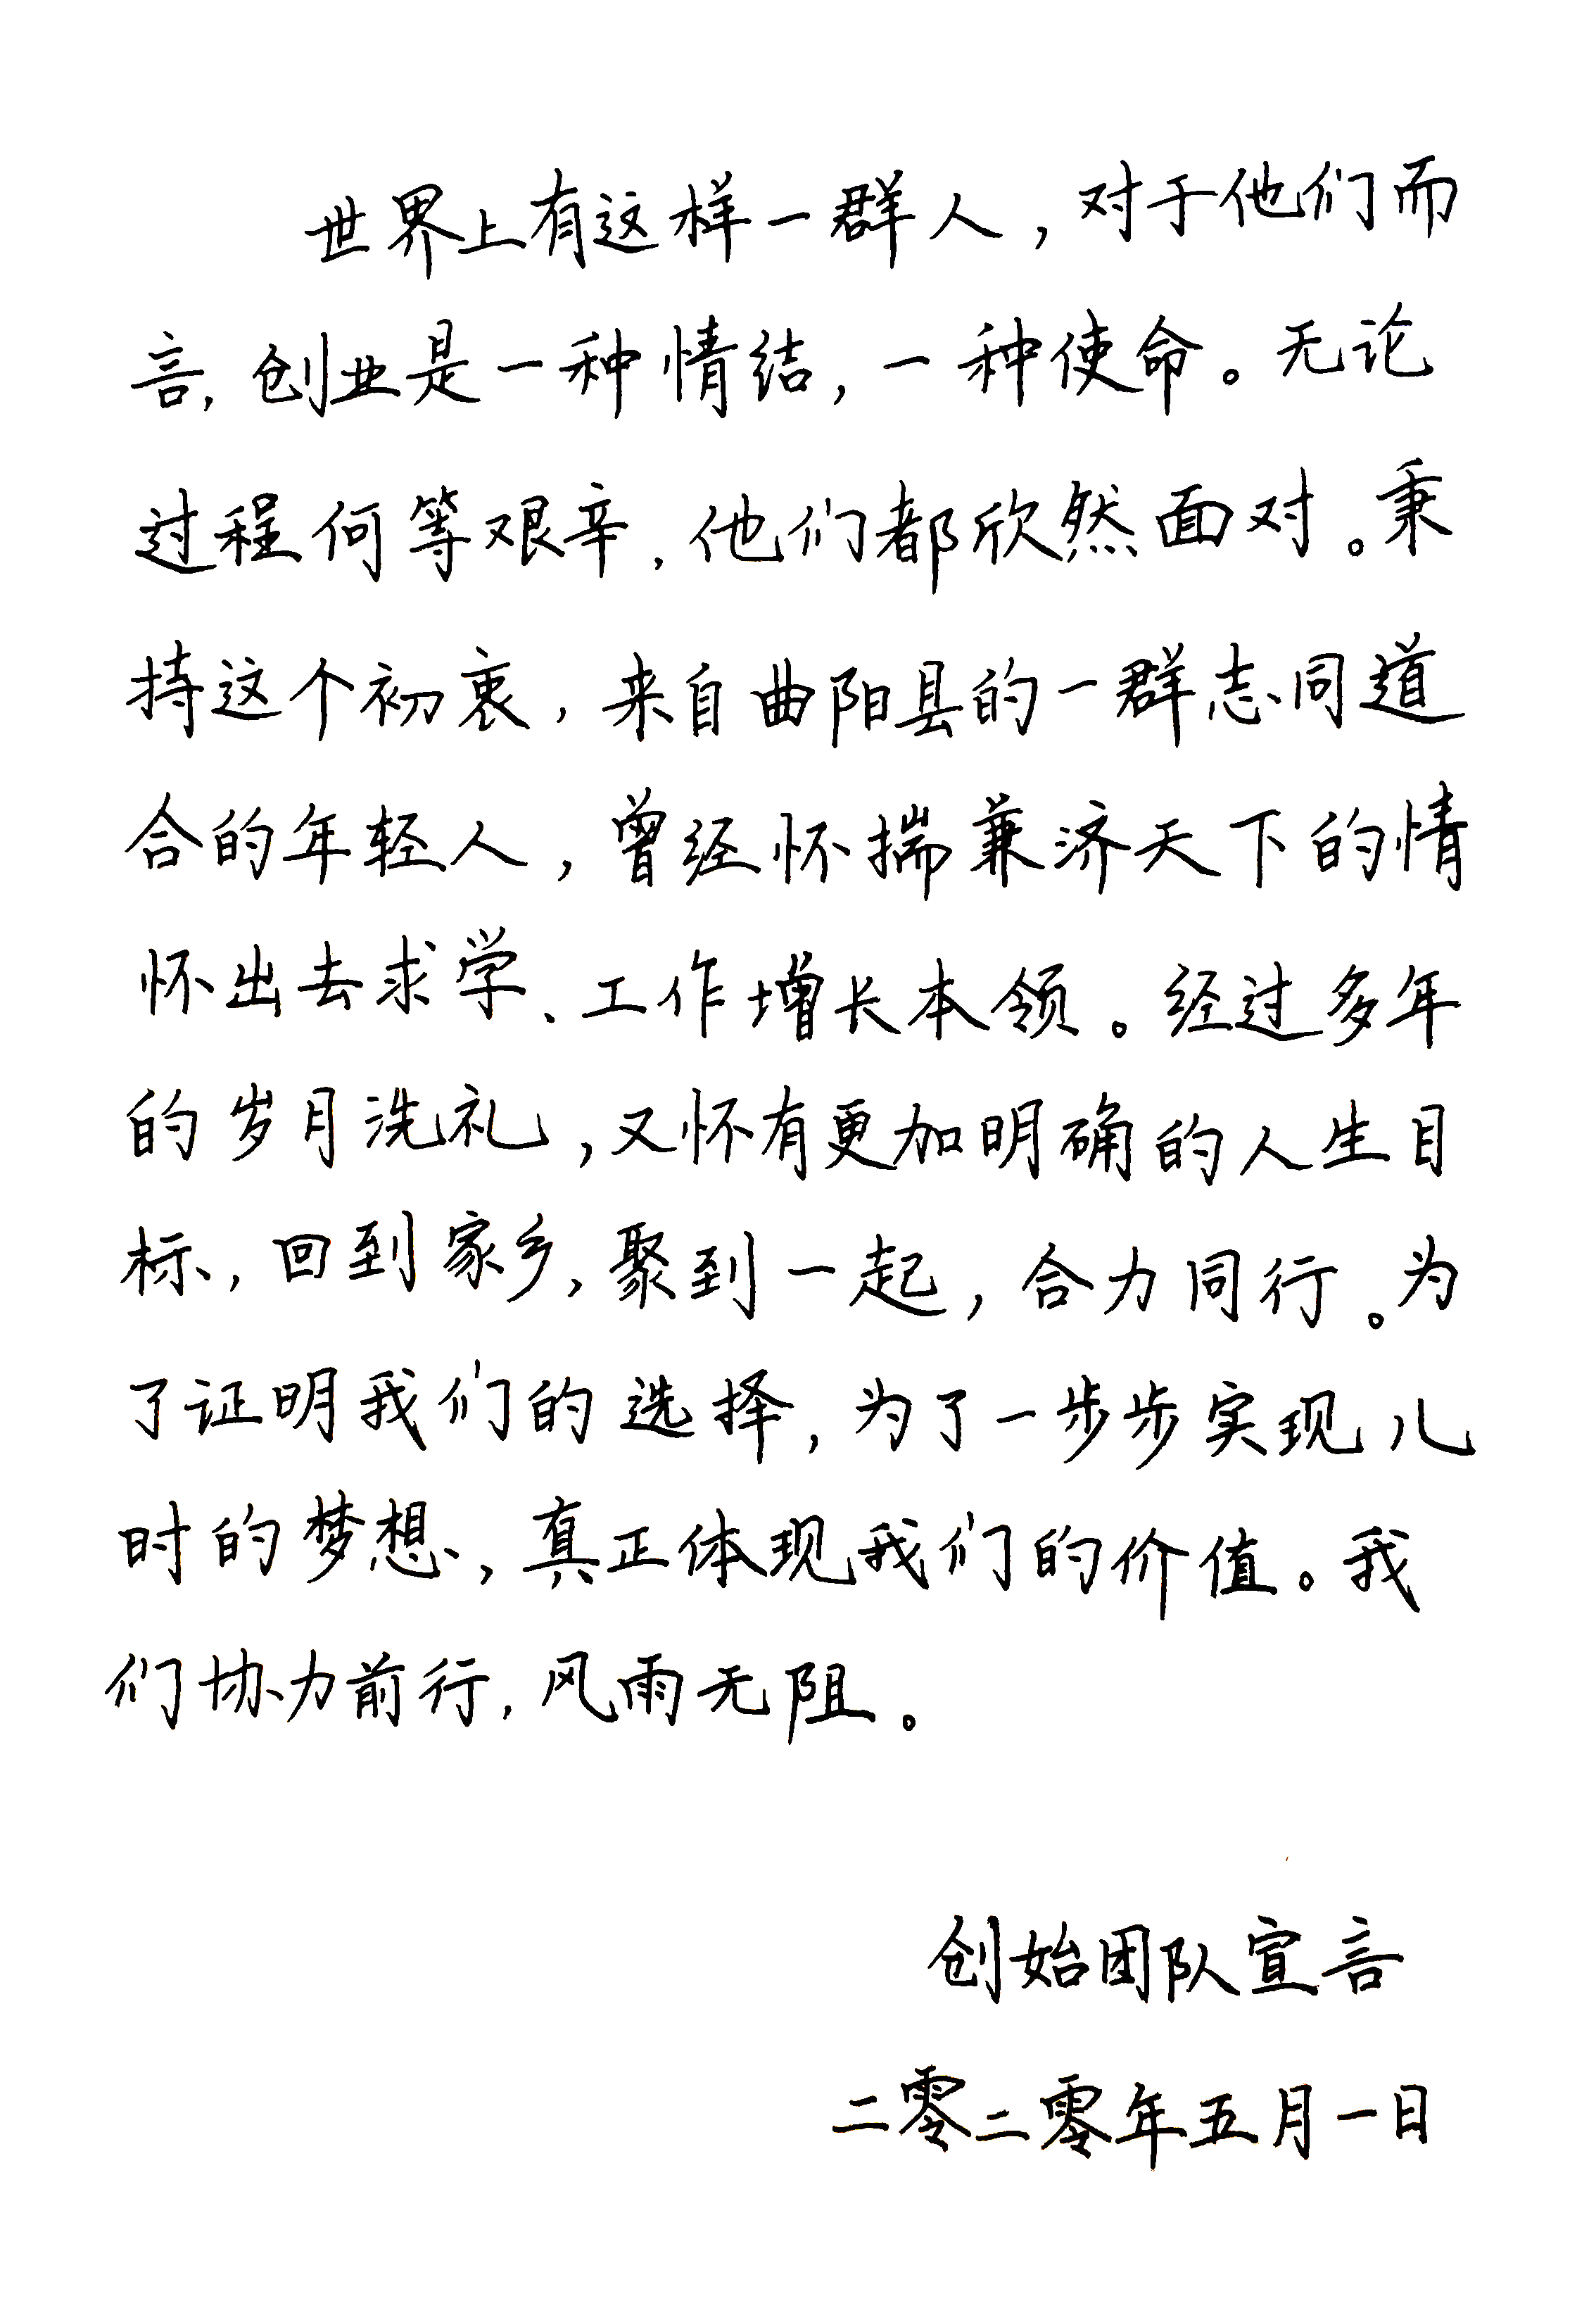 世界上有这样一群人，对于他们而
言，创业是一种情结，一种使命。无论
过程何等艰辛，他们都欣然面对。秉
持这个初衷，来自曲阳县的一群志同道
合的年轻人，曾经怀揣兼济天下的情
怀出去求学、工作增长本领。经过多年
的岁月洗礼，又怀有更加明确的人生目
标，回到家乡，聚到一起，合力同行。为
了证明我们的选择，为了一步步实现儿
时的梦想，真正体现我们的价值。我
们协力前行，风雨无阻。
创始团队宣言
二零二零年五月一日